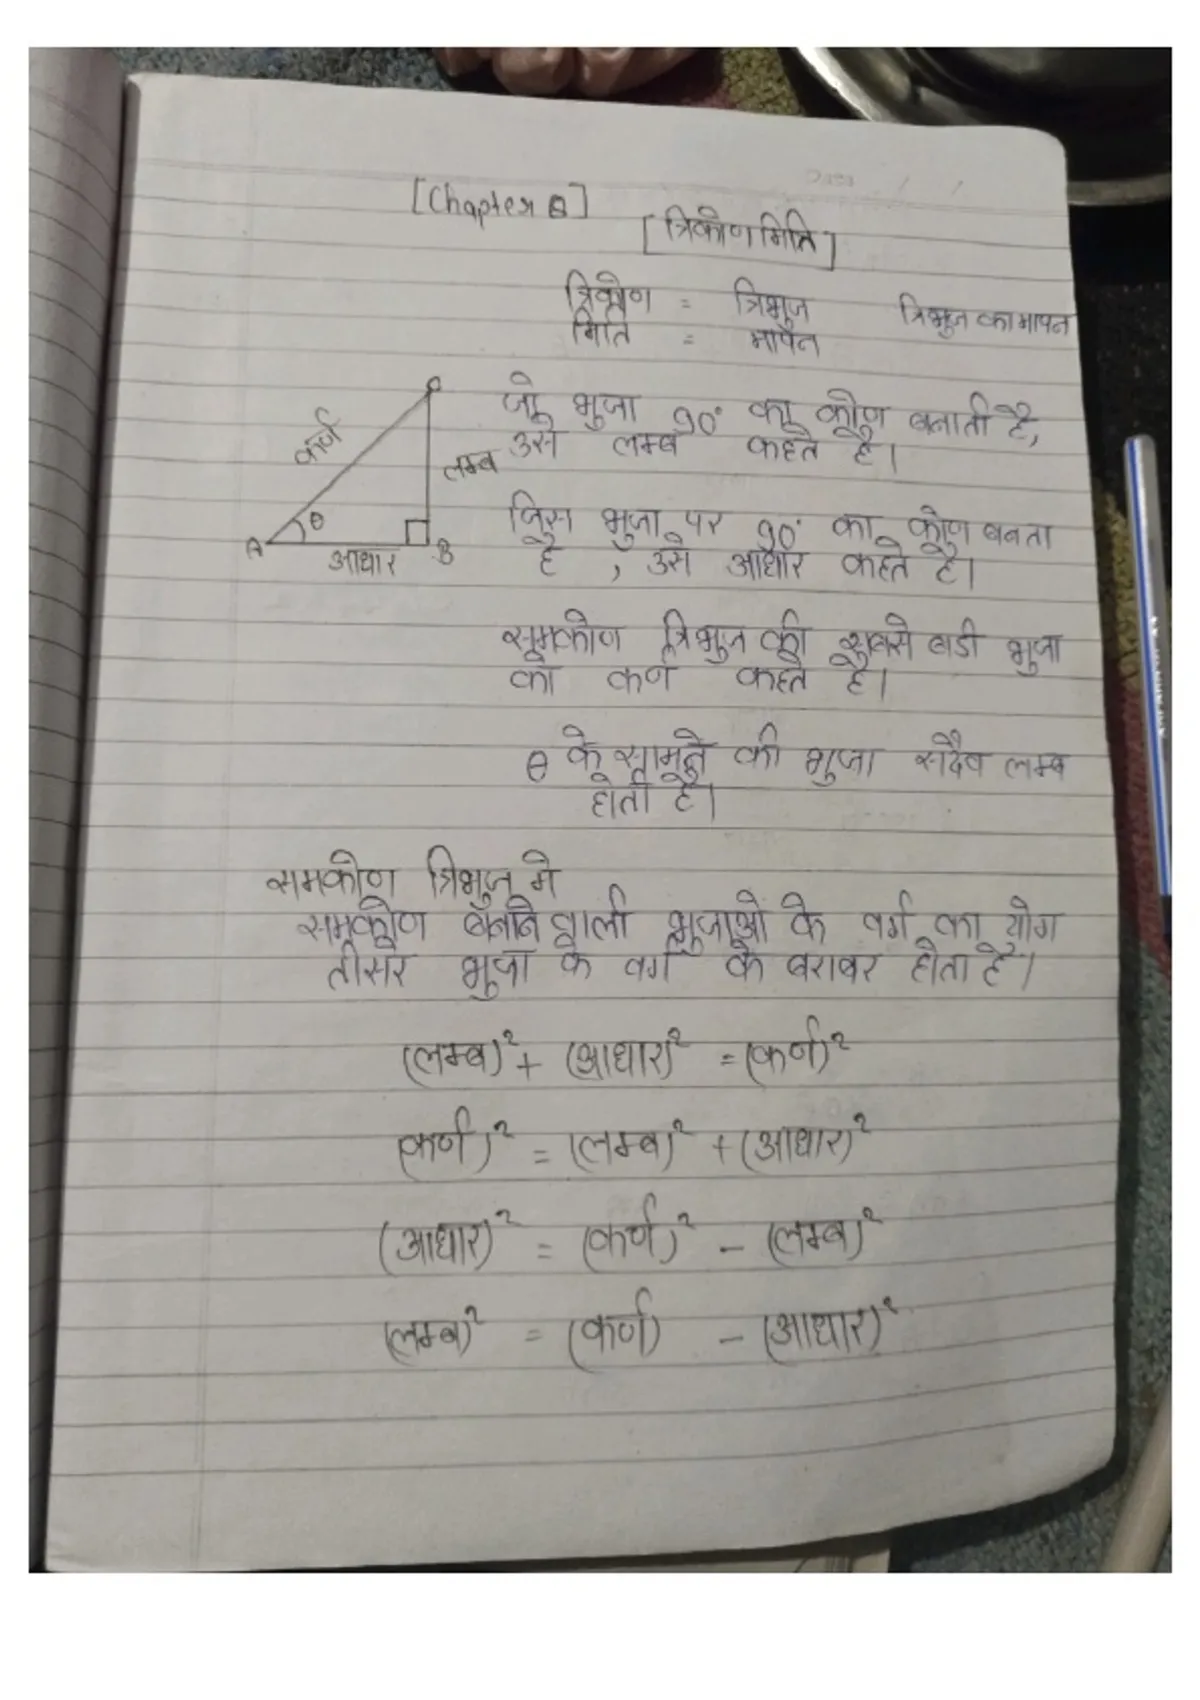 [Chapter 8]
[त्रिकोणमिति]
त्रिकोण = त्रिभुज त्रिभुज का मापन
मिति = मापन
जो भुजा 90° का कोण बनाती है,
उसे लम्ब कहते है।
C
कर्ण
लम्ब
θ
A
आधार
B
जिस भुजा पर 90° का कोण बनता
है , उसे आधार कहते है।
समकोण त्रिभुज की सबसे बडी भुजा
को कर्ण कहते है।
θ के सामने की भुजा सदैव लम्ब
होती है।
समकोण त्रिभुज मे
समकोण बनाने वाली भुजाओ के वर्ग का योग
तीसरे भुजा के वर्ग के बराबर होता है।
(लम्ब)² + (आधार)² = (कर्ण)²
(कर्ण)² = (लम्ब)² + (आधार)²
(आधार)² = (कर्ण)² - (लम्ब)²
(लम्ब)² = (कर्ण) - (आधार)²